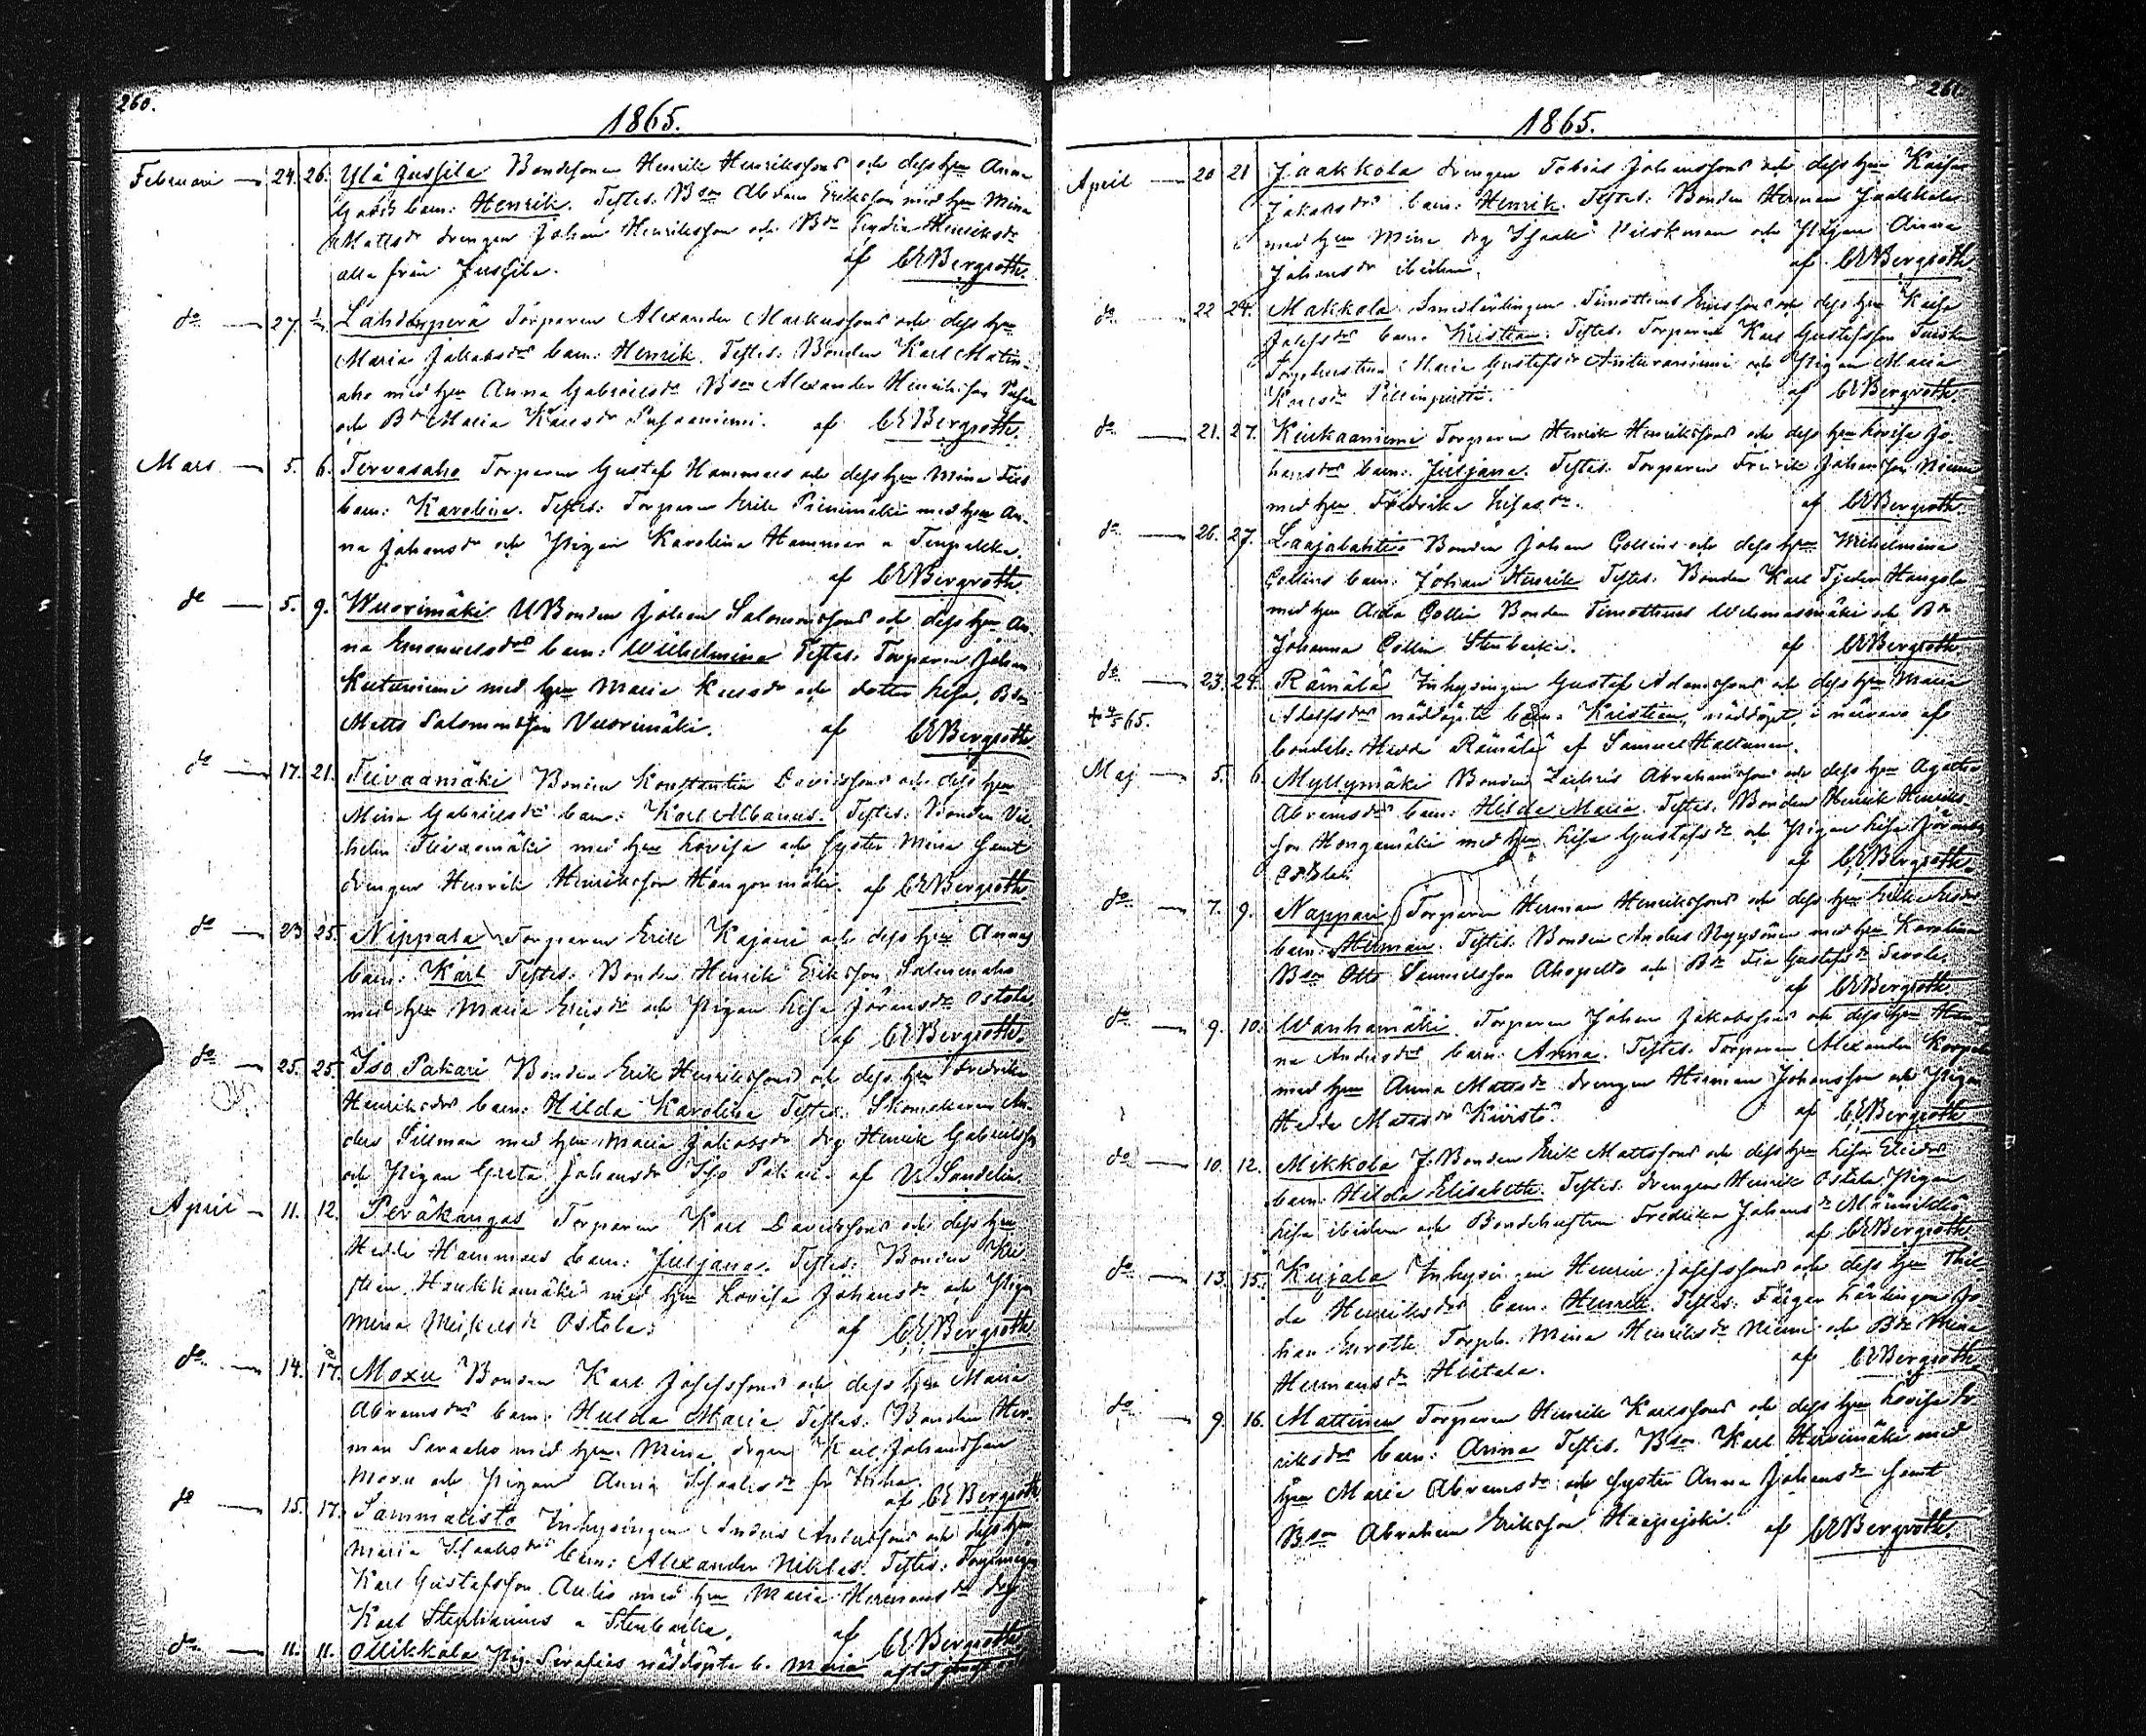 260.
1865.
Februari 24. 26. Ylä Jussila Bondesonen Henrik Henrikssons och dess hru Anna
barn: Henrik. Testes: Bson Abram Eriksson med hru Mina
Mattsdr drengen Johan Henriksson och Bdr Lydia Henriksdr
alla från Jussila. af CEBergroth.
do 27. Lahdenperä Torparen Alexander Markussons och dess hru
Maria Jakobsdrs barn: Henrik. Testes: Bonden Karl Matin-
aho med hru Anna Gabrielsdr Bson Alexander Henriksson
och Bdr Maria Karlsdr af CEBergroth.
Mars 5. 6. Tervasaho Torparen Gustaf Hammars och dess hru Mina
barn: Karolina. Testes: Torparen Erik Pienimäki med hru An-
na Johansdr och Pigan Karolina Hammar a
af CEBergroth.
do 5. 9. Wuorimäki UBonden Johan Salomonssons och dess hru An-
na Emanuelsdrs barn: Wilhelmina Testes: Torparen Johan
Kutuniemi med hru Maria Karlsdr och dotter Lisa, Bson
Matts Salomonsson Vuorimäki. af CEBergroth
do 17. 21. Teivaamäki Bonden Konstantin Davidssons och dess hru
Mina Gabrielsdrs barn: Karl Albanus. Testes: Bonden Vil-
helm Teivaamäki med hru Lovisa och syster Mina samt
drengen Henrik Henriksson Hangonmäki. af CEBergroth.
do 23 25. Nippala Torparen Erik Kajani och dess hru Annas
barn: Karl Testes: Bonden Henrik Eriksson Salmenaho
med hru Maria Ericsdr och Pigan Lisa Jöransdr Ostola.
af CEBergroth.
do 25. 25. Iso Pakari Bonden Erik Henrikssons och dess hru Fredrika
Henriksdrs barn: Hilda Karolina Testes: Skomakaren An-
ders Sillman med hru Maria Jakobsdr drg Henrik Gabrielsson
och Pigan Greta Johansdr Iso Pakari. af Sandelin.
April 11. 12. Peräkangas Torparen Karl Davidssons och dess hru
Hedda Hammars barn: Juljana. Testes: Bonden Kri
stian Haukkamäki med hru Lovisa Johansdr och Pigan
Mina Ostola: af CEBergroth
do 14. 17. Moxu Bonden Karl Josefssons och dess hru Maria
Abramsdrs barn: Hulda Maria Testes: Bonden Her-
man Saraaho med hru Mina, drgen Karl Johansson
Moxu och Pigan Anna Isaaksdr fr af CEBergroth
do 15. 17. Sammalisto Inhysingen Anders Anderssons och dess hru
Maria Isaaksdrs barn: Alexander Niklas. Testes:
Karl Gustafsson Aulis med hru Maria Hermansdr drg
Karl Stenbacka. af CEBergroth
do 11. 11. Ollikkala Pig. Serafias nöddöpta b. Maria
261.
1865.
April 20 21 Jaakkola drengen Tobias Johanssons och dess hru Kaisa
Jakobsdrs barn: Henrik. Testes: Bonden Herman Jaakkola
med hru Mina drg Isaak och Pigan Anna
Johansdr ibidem. af CEBergroth
do 22 24. Makkola Smedlärlingen Timotheus Ericssons och dess hru Kaisa
Josefsdrs barn: Kristian: Testes: Torparen Karl Gustafsson
Torphustrun Maria Gustafsdr och Pigan Maria
Karlsdr af CEBergroth.
do 21. 27. Kiukaanniemi Torparen Henrik Henrikssons och dess hru Lovisa Jo-
hansdrs barn: Juljana. Testes: Torparen Fredrik Johansson Niemi
med hru Fredrika Esaiasdr. af CEBergroth
do 26. 27. Laajalahti Bonden Johan Collins och dess hru Wilhelmina
Collins barn: Johan Henrik Testes: Bonden Karl Tjeder Hangola
med hru Aida Collin Bonden Timotheus och Bdr
Johanna Collin Stenbacka. af CEBergroth
do 23. 24. Rämälä Inhysingen Gustaf Adamssons och dess hru Maria
+ 4/5 65. Adolfsdrs nöddöpta barn: Kristian, nöddöpt i närvaro af
bondeh. Hedda Rämälä af Samuel Hallunen.
Maj 5. 6 Myllymäki Bonden Zachris Abrahamssons och dess hru Agatha
Abramsdrs barn: Hilda Maria. Testes. Bonden Henrik Henriks-
son Hongamäki med hru Lisa Gustafsdr och Pigan Lisa Jöransdr
Ostola. af CEBergroth.
do 7. 9. Nappari Torparen Herman Henrikssons och dess hru
barn: Herman. Testes. Bonden Anders Nyysönen med hru Karolina
Bson Otto Samuelsson Ahopelto och Bdr Fia Gustafsdr Savola.
af CEBergroth
do 9. 10. Wanhamäki Torparen Johan Jakobssons och dess hru
na Andersdrs barn: Anna. Testes. Torparen Alexander Korpela
med hru Anna Mattsdr drengen Herman Johansson och Pigan
Hedda Matsdr Kiivisto. af CEBergroth
do 10. 12. Mikkola J.Bonden Erik Mattssons och dess hru Lisa Eliedrs
barn: Hilda Elisabeth. Testes. drengen Henrik Ostola, Pigan
Lisa ibidem och Bondehustrun Fredrika Johansdr Männikkö
af CEBergroth
do 13. 15. Kujala Inhysingen Henrik Josefssons och dess hru Thil
da Henriksdrs barn: Henrik. Testes: Färgare Lärlingen Jo
han Enroth Torpd. Mina Henriksdr Niemi och Bdr Mina
Hermansdr Hietala. af CEBergroth
do 9. 16. Mattinen Torparen Henrik Karlssons och dess hru Lovisa Er
riksdrs barn: Anna Testes. Bson Karl Hirvimäki med
hru Maria Abramsdr och syster Anna Johansdr samt
Bson Abraham Eriksson Haapojski. af CEBergroth.